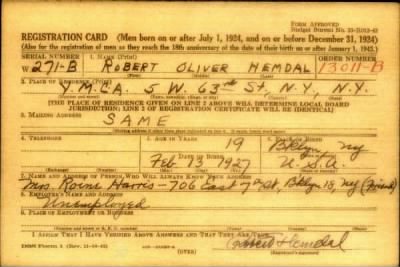 FORM APPROVED
REGISTRATION CARD (Men born on or after July 1, 1924, and on or before December 31, 1924)
(Also for the registration of men as they reach the 18th anniversary of the date of their birth on or after January 1, 1925.)
SERIAL NUMBER 1. NAME (Print) ORDER NUMBER
W 271-B ROBERT OLIVER HEMDAL 13011-B
(First) (Middle) (Last)
2. PLACE OF RESIDENCE (Print)
Y.M.C.A. 5 W. 63rd St, N.Y., N.Y.
[THIS PLACE OF RESIDENCE GIVEN ON LINE 2 ABOVE WILL DETERMINE LOCAL BOARD
JURISDICTION; LINE 2 OF REGISTRATION CERTIFICATE WILL BE IDENTICAL]
3. MAILING ADDRESS
SAME
4. TELEPHONE
19 Bklyn NY
DATE OF BIRTH
Feb 13 1927 U.S.A.
7. NAME AND ADDRESS OF PERSON WHO WILL ALWAYS KNOW YOUR ADDRESS
Mrs. Harris - 706 East 7th St, Bklyn 18, NY (Friend)
8. EMPLOYER'S NAME AND ADDRESS
Unemployed
9. PLACE OF EMPLOYMENT OR BUSINESS
I AFFIRM THAT I HAVE VERIFIED ABOVE ANSWERS AND THAT THEY ARE TRUE.
DSS Form 1
(OVER)
Robert Hemdal